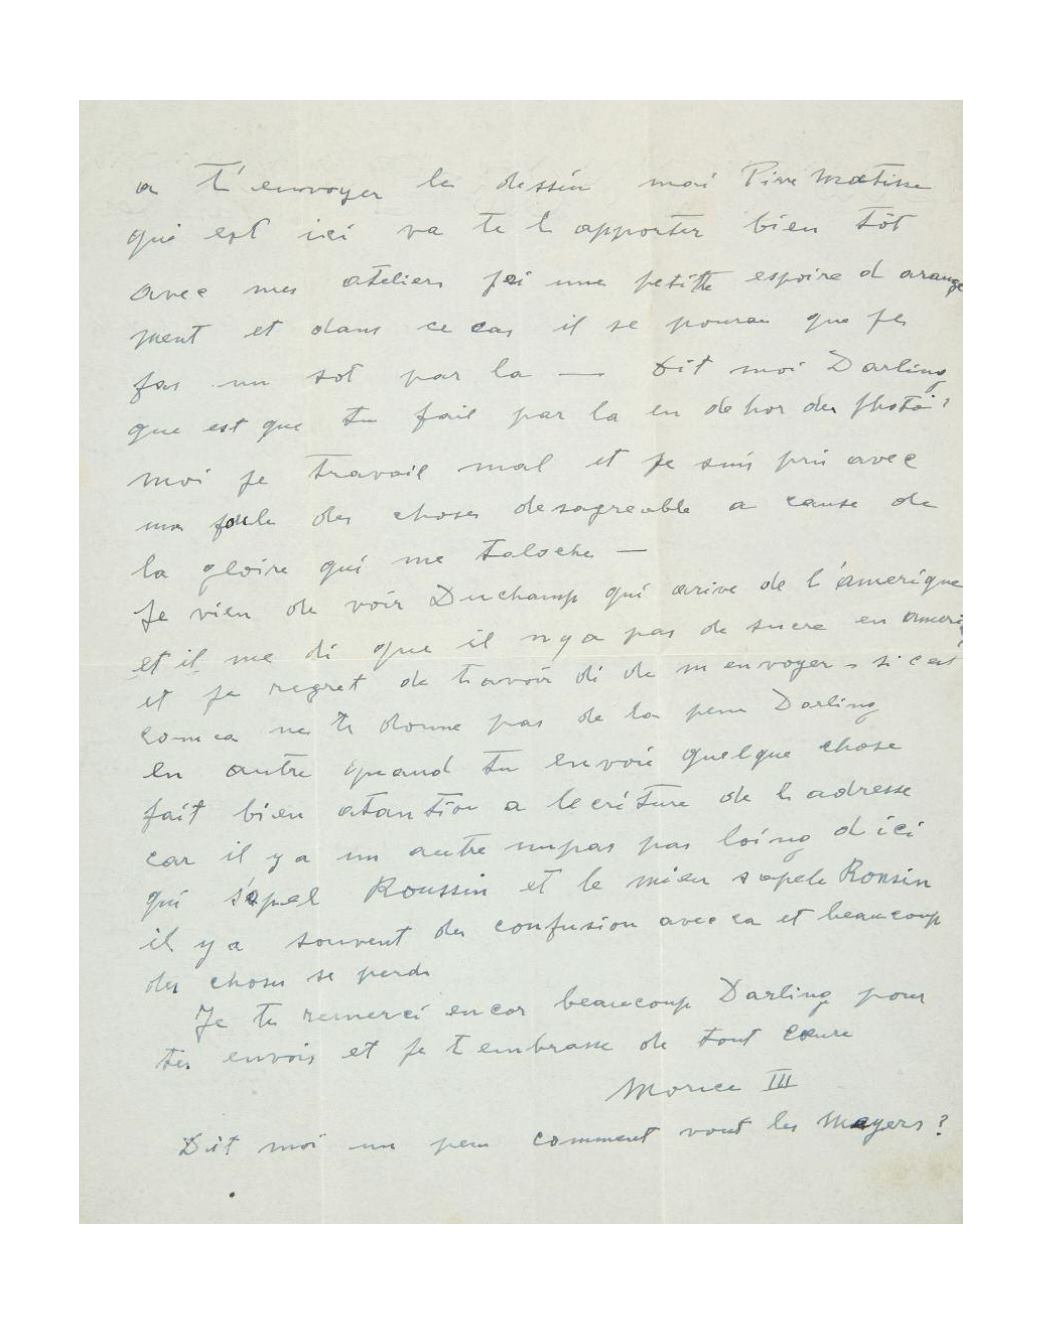 a t'envoyer le dessin mai Pirre Matisse
qui est ici va te l apporter bien tôt
avec mes ateliers jai une petitte espoire d arange
ment et dans ce cas il se pourau que je
fas un sot par la — Dit moi Darling
que est que tu fait par la en dehor des photo?
moi je travail mal et je suis pris avec
une foule des choses desagreable a cause de
la gloire qui me taloche —
Je vien de voir Duchamp qui arive de l'amerique
et il me di que il nya pas de sucre en ameriq
et je regret de t avoir di de m envoyer si cest
com ca ne te donne pas de la pene Darling
en autre quand tu envoie quelque chose
fait bien atantion a lecriture de l adresse
car il y a un autre impas pas loing d ici
qui s'apel Roussin et le mien sapele Ronsin
il y a souvent des confusion avec ca et beaucoup
des choses se perde
Je te remerci encor beaucoup Darling pour
tes envois et je t embrasse de tout cœure
Morice III
Dit moi un peu comment vont les Mayers?